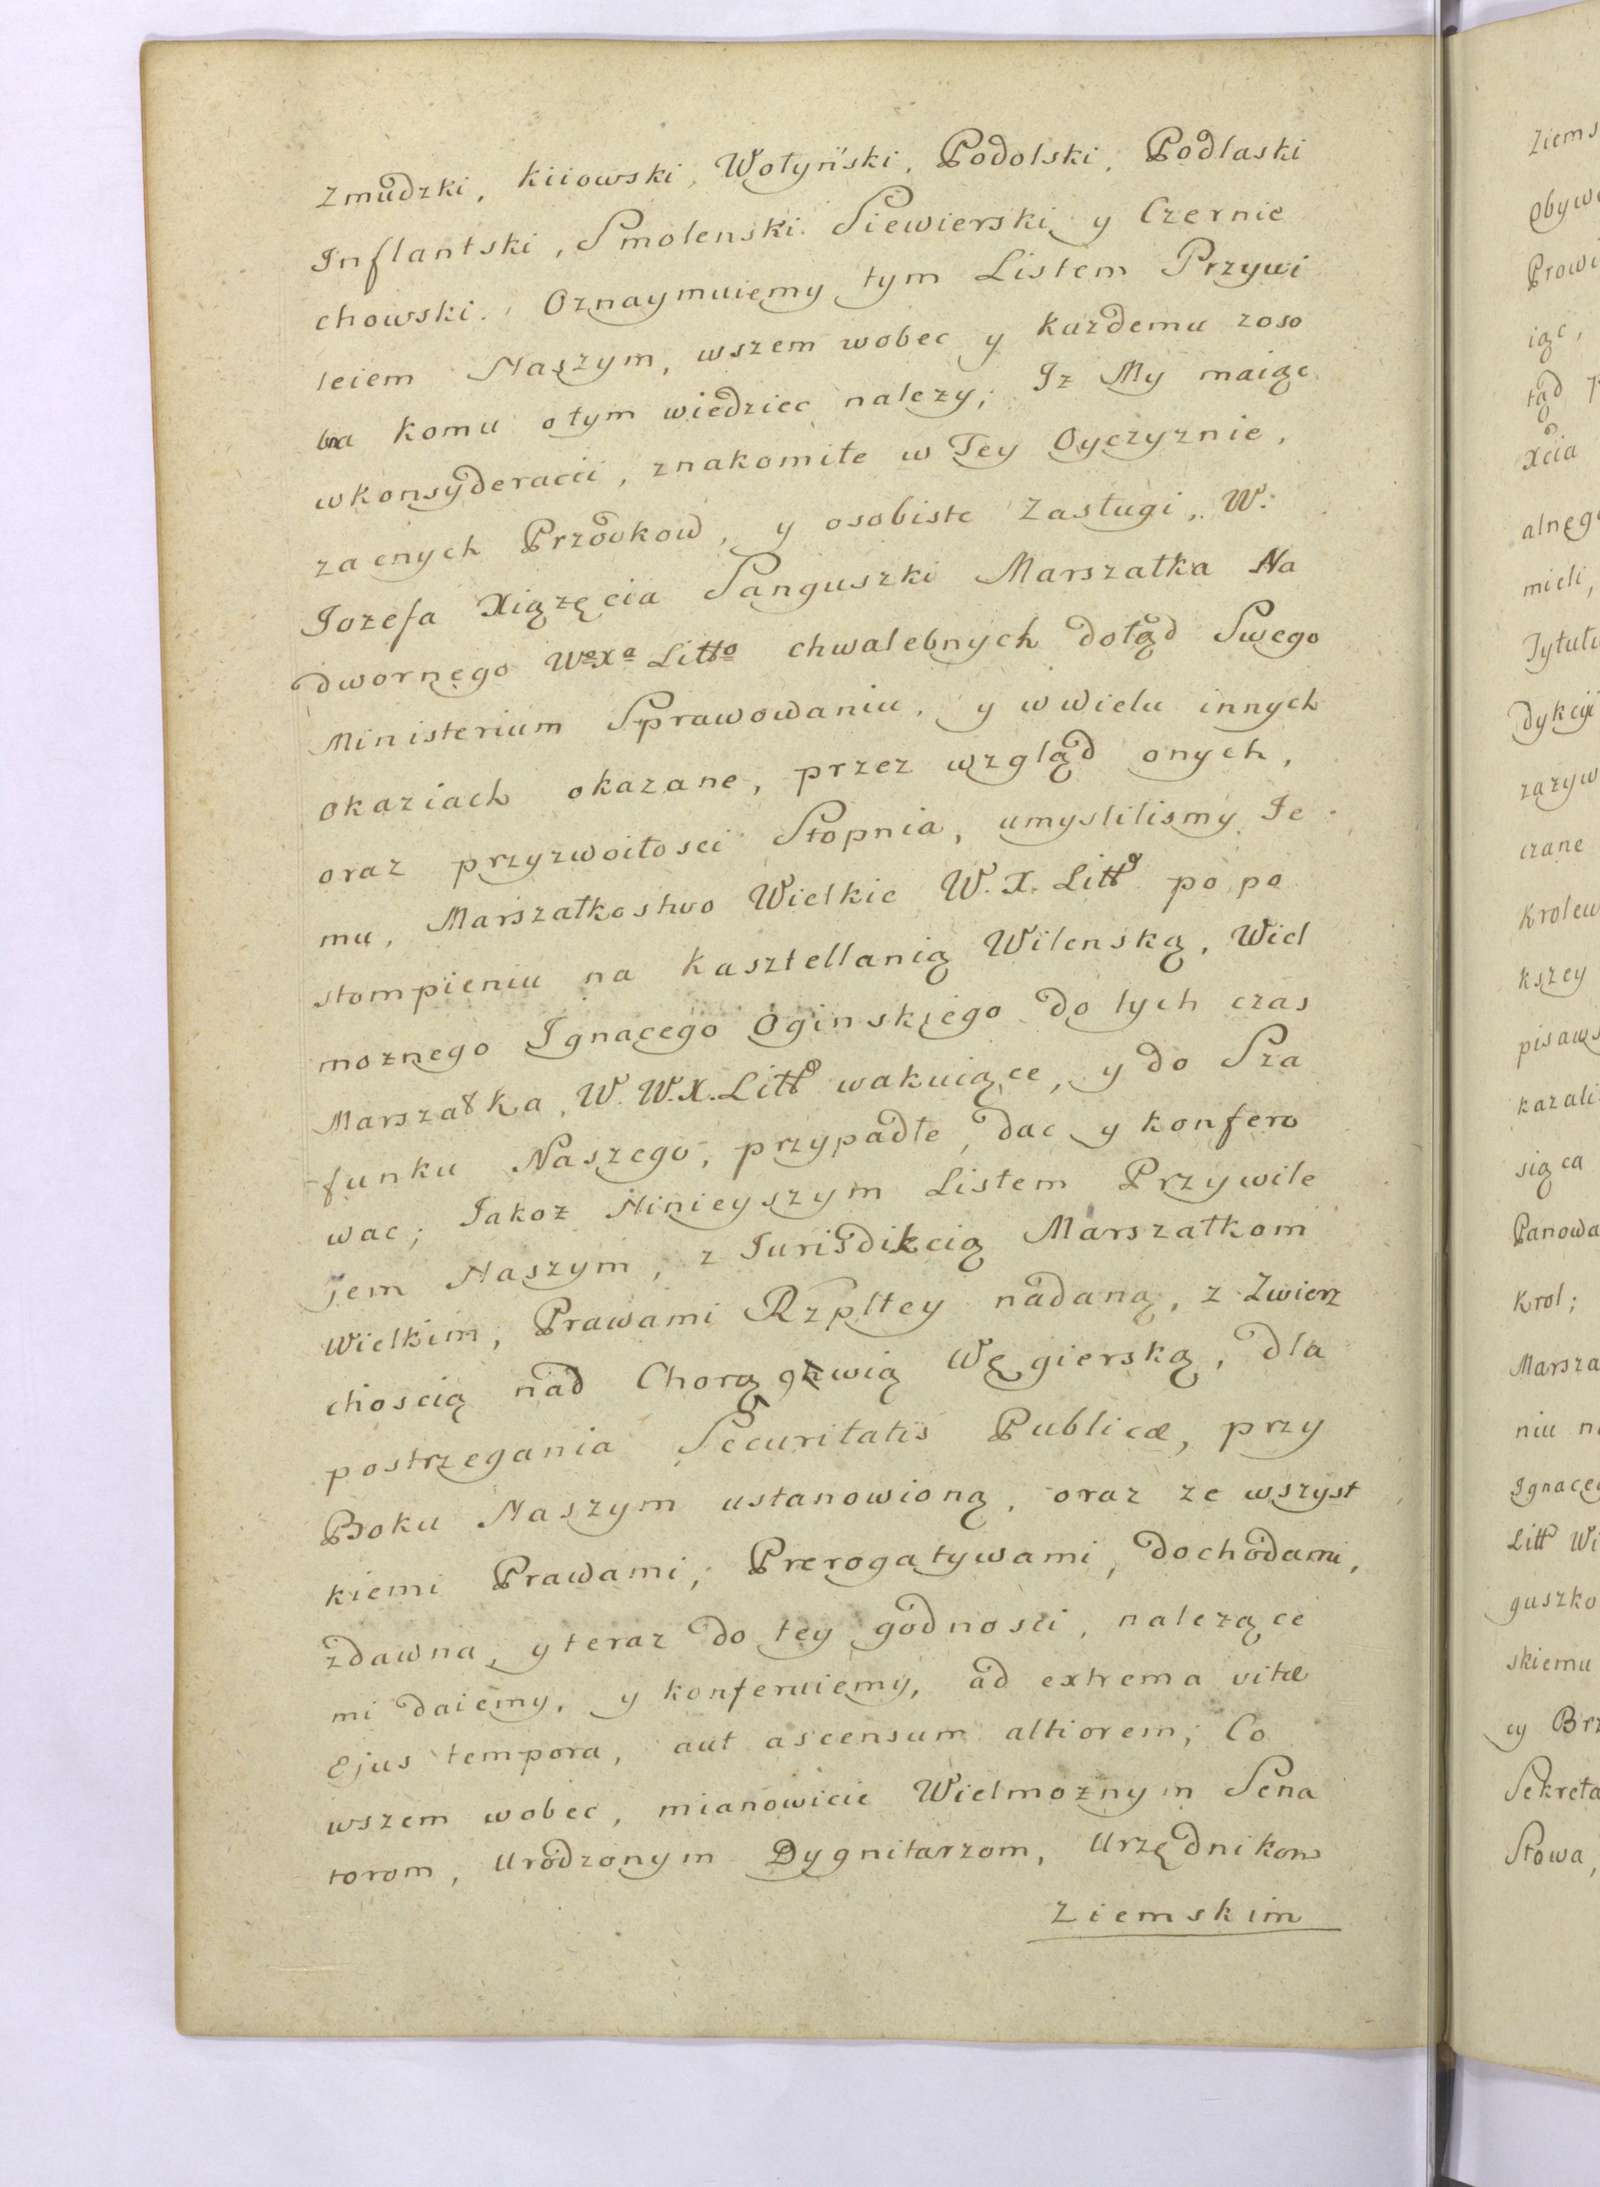 Zmudzki, Kiiowski, Wołyński, Podolski, Podlaski
Inflantski, Smolenski. Siewierski, y Czernie
chowski. Oznaymuiemy tym Listem Przywi
leiem Naszym, wszem wobec y każdemu zoso
bna komu otym wiedziec nalezy; Iz My maiąc
wkonsyderacii, znakomite w Tey Oyczyznie,
zacnych Przodkow, y osobiste Zasługi, W.
Jozefa Xiązęcia Sanguszki Marszałka Na
dwornego Wº Xª Littº chwalebnych dotąd Swego
Ministerium Sprawowaniu, y w wielu innych
okaziach okazane, przez wzgląd onych,
oraz przyzwoitosci Stopnia, umyslilismy Je
mu, Marszałkostwo Wielkie W. X. Littº po po
stompieniu na Kasztellanią Wilenską, Wiel
możnego Ignacego Oginskiego do tych czas
Marszałka, W. W. X. Littº wakuiące, y do Sza
funku Naszego, przypadłe, dac y konfero
wac; Jakoż Ninieyszym Listem Przywile
jem Naszym, z Jurisdikcią Marszałkom
Wielkim, Prawami Rzpltey nadaną, z Zwierz
choscią nad Chorągwią Węgierską, dla
postrzegania Securitatis Publicæ, przy
Boku Naszym ustanowioną, oraz ze wszyst
kiemi Prawami, Prerogatywami, dochodami,
zdawna, y teraz do tey godnosci, należące
mi daiemy, y konferuiemy, ad extrema vitæ
Ejus tempora, aut ascensum altiorem; Co
wszem wobec, mianowicie Wielmożnym Sena
torom, Urodzonym Dygnitarzom, Urzędnikom
Ziemskim
Ziems
Obywa
Prowi
iąc,
tąd
Xcia
alnego
mieli,
Tytuł
dykcyi
zazyw
czane
Krolew
kszey
pisaws
kazali
siąca
Panowa
Krol;
Marsza
niu na
Ignaceg
Littº Wi
guszko
skiemu
cy Brz
Sekreta
Słowa,